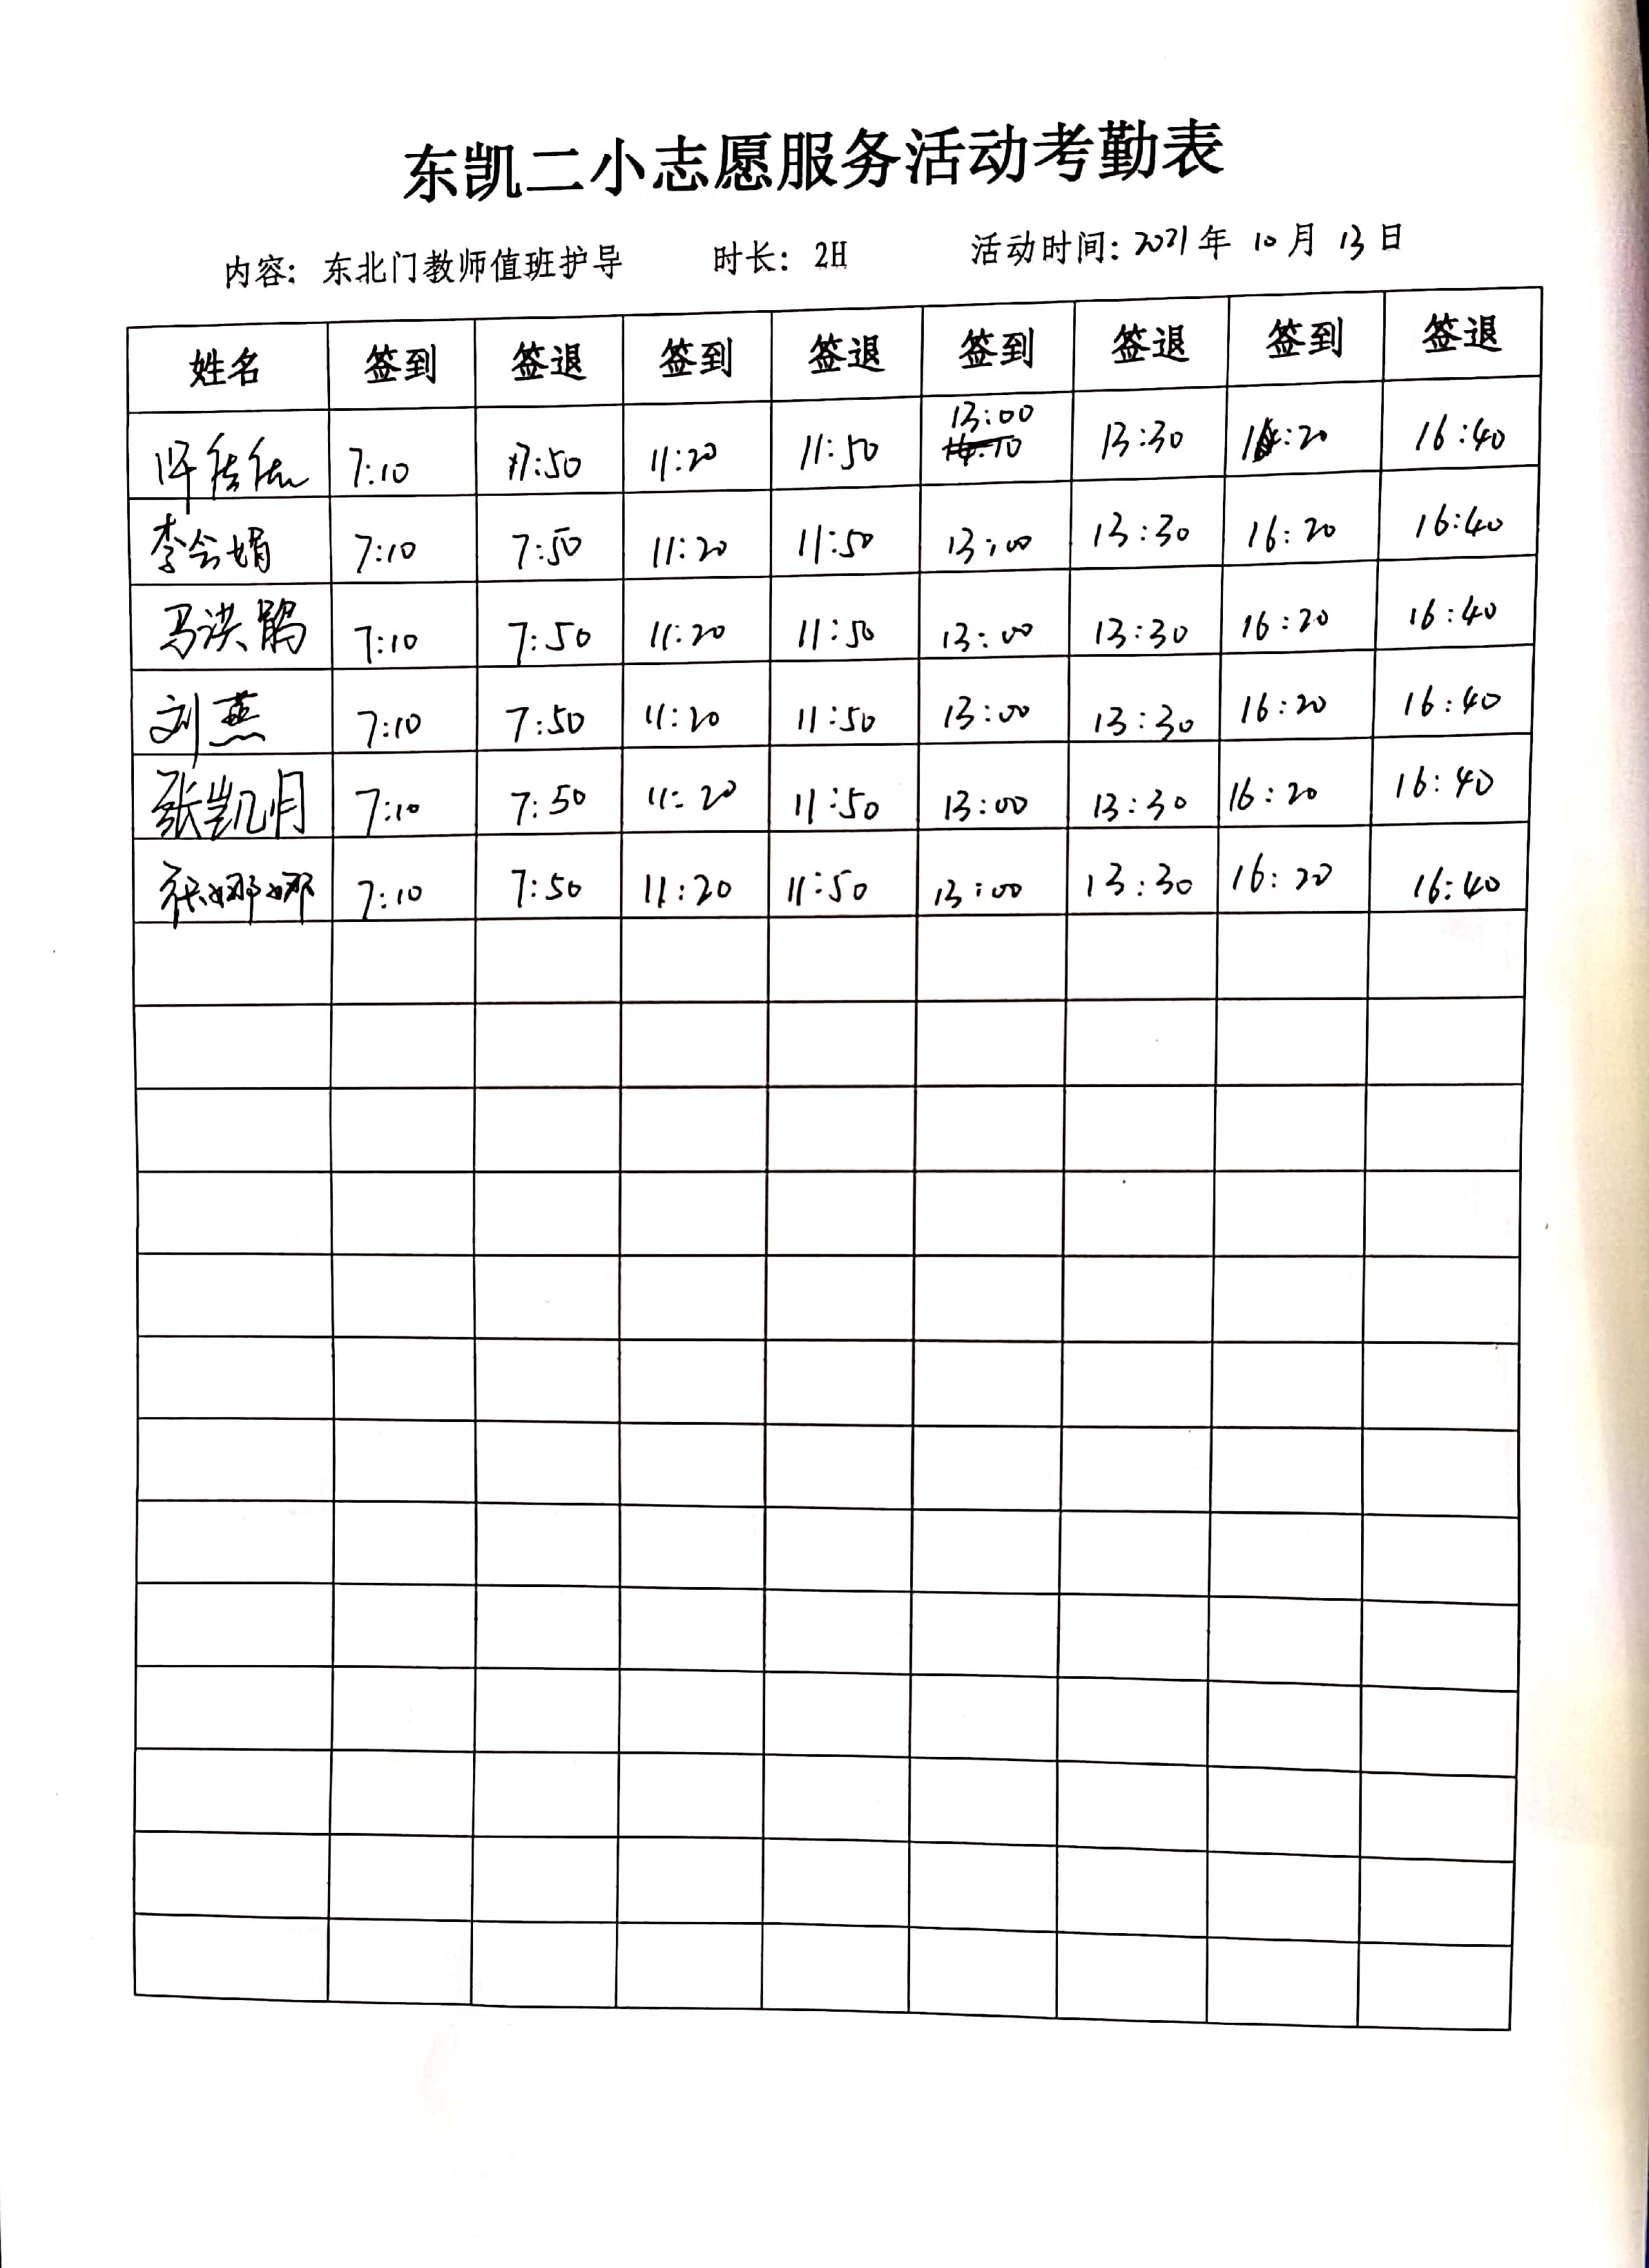 东凯二小志愿服务活动考勤表
内容：东北门教师值班护导 时长：2H 活动时间：2021年10月13日
姓名 签到 签退 签到 签退 签到 签退 签到 签退
13:00
许 7:10 7:50 11:20 11:50 13:30 16:20 16:40
李会娟 7:10 7:50 11:20 11:50 13:00 13:30 16:20 16:40
马洪鹃 7:10 7:50 11:20 11:50 13:00 13:30 16:20 16:40
刘燕 7:10 7:50 11:20 11:50 13:00 13:30 16:20 16:40
张凯月 7:10 7:50 11:20 11:50 13:00 13:30 16:20 16:40
张娜娜 7:10 7:50 11:20 11:50 13:00 13:30 16:20 16:40